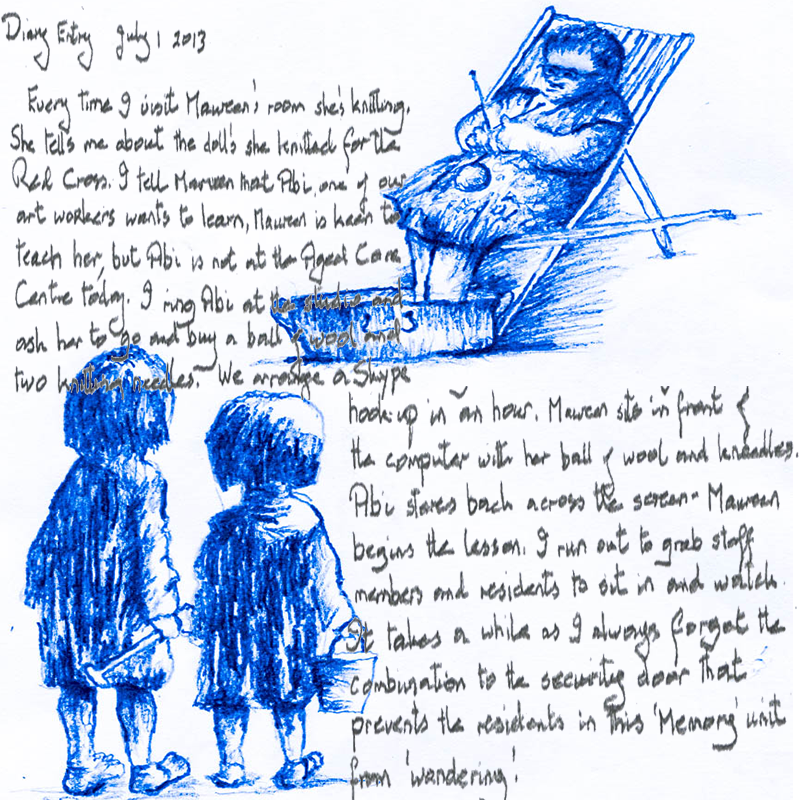 Diary Entry July 1 2013
Every time I visit Maureen's room she's knitting.
She tells me about the doll's she knitted for the
Red Cross. I tell Maureen that Abi, one of our
art workers wants to learn, Maureen is keen to
teach her, but Abi is not at the Aged Care
Centre today. I ring Abi at the studio and
ask her to go and buy a ball of wool and
two knitting needles. We arrange a Skype
2 3
hook-up in an hour. Maureen sits in front of
the computer with her ball of wool and kneedles.
Abi stares back across the screen - Maureen
begins the lesson. I run out to grab staff
members and residents to sit in and watch.
It takes a while as I always forget the
combination to the security door that
prevents the residents in this 'Memory' unit
from 'wandering'!